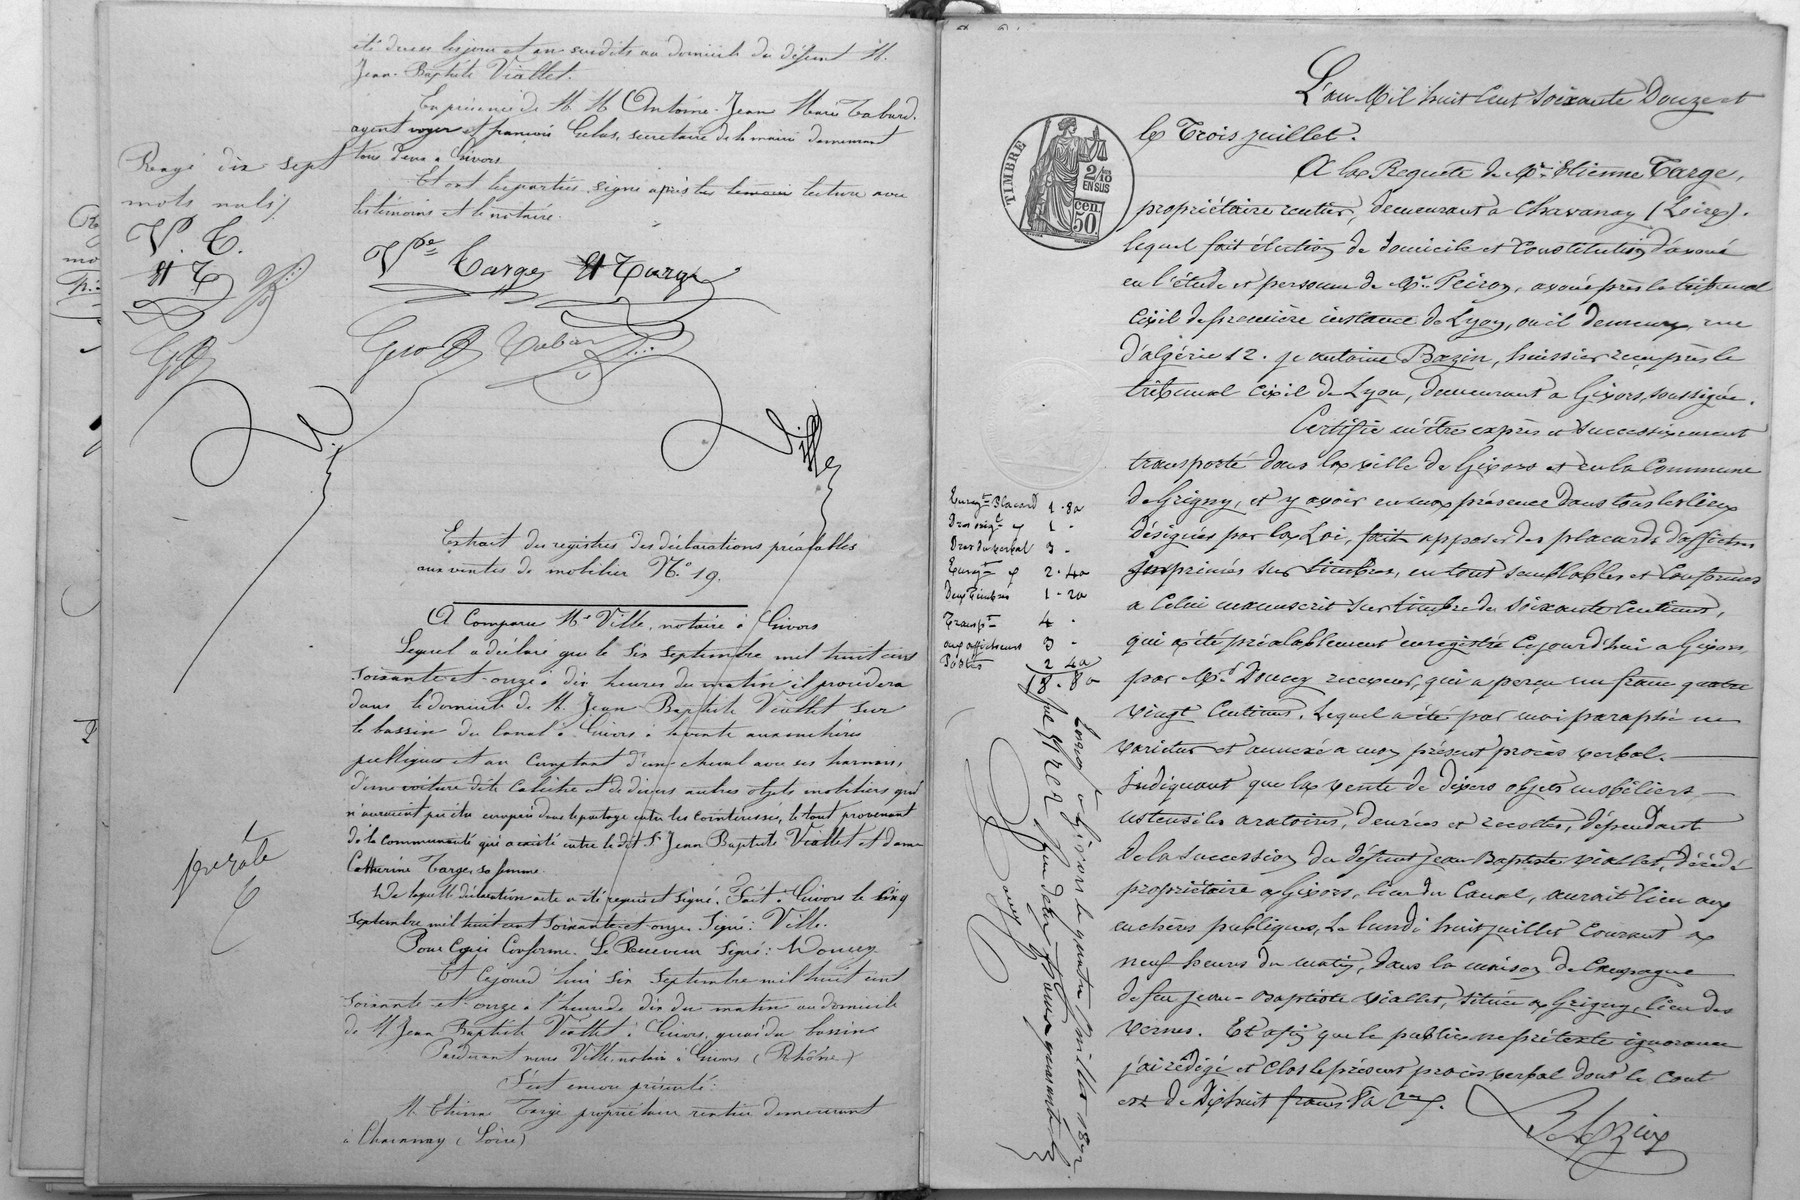 été dures les jour et an susdits au domicile du défunt M.
Jean-Baptiste Viallet.
En présence de M. M. Antoine-Jean Marie Tabard,
agent voyer et françois secrétaire de la mairie demeurant
tous deux à Givors
Et ont les parties signé après lecture avec
les témoins et le notaire.
Rayé dix sept
mots nuls
V. T.
Vve Targe Et Targe
Tabard
Ville
Extrait des registres des déclarations préalables
aux ventes de mobilier N.o 19.
A Comparu Me Ville, notaire à Givors
Lequel a déclaré que le six septembre mil huit cent
soixante-et-onze à dix heures du matin il procédera
dans le domicile de M. Jean Baptiste Viallet sur
le bassin du Canal à Givors à la vente aux enchères
publiques et au comptant d'un cheval avec ses harnais,
d'une voiture dite Calèche et de divers autres objets mobiliers qui
n'auraient pu être compris dans le partage entre les cointéressés, le tout provenant
de la communauté qui a existé entre le dit Sr Jean Baptiste Viallet et dame
Catherine Targe, sa femme.
De laquelle déclaration acte a été requis et signé. Fait à Givors le cinq
septembre mil huit cent soixante-et-onze. Signé: Ville.
Pour Copie Conforme. Le Receveur Signé: Doucey
Et cejourd'hui six septembre mil huit cent
soixante-et-onze à l'heure de dix du matin au domicile
de M. Jean Baptiste Viallet à Givors, quai du bassin
Pardevant nous Ville, notaire à Givors (Rhône)
S'est encore présenté:
M. Etienne Targe propriétaire rentier demeurant
à Chavannay (Loire)
L'an Mil huit Cent soixante Douze et
le Trois juillet.
TIMBRE
2/10
EN SUS
50 cen
A la Requête de Mr. Etienne Targe,
propriétaire rentier, demeurant à Chavanay (Loire).
lequel fait élection de domicile et Constitution d'avoué
en l'étude et personne de Me. Peiron, avoué près le tribunal
Civil de première instance de Lyon, où il demeure, rue
d'algérie 12. je antoine Bazin, huissier reçu près le
tribunal Civil de Lyon, demeurant a Givors, soussigné.
Certifie m'être exprès et successivement
transporté dans la ville de Givors et en la Commune
de Grigny, et y avoir en ma présence dans tous les lieux
désignés par la Loi, fait apposer des placards d'affiches
imprimés sur timbres, en tout semblables et Conformes
a Celui manuscrit sur timbre de soixante Centimes,
qui a été préalablement enregistré Cejourd'hui a Givors
par Mr. Doucey receveur, qui a perçu un franc quatre
vingt Centimes. Lequel a été par moi paraphé ne
varietur et annexé a mon présent procès verbal.
Indiquant que la vente de divers objets mobiliers
ustensiles aratoires, denrées et recoltes, dépendant
de la succession du défunt Jean Baptiste Viallet, décédé
propriétaire a Givors, lieu du Canal, aurait lieu aux
enchères publiques, Le lundi huit juillet Courant a
neuf heures du matin, dans la maison de Campagne
de feu Jean-Baptiste Viallet, située a Grigny, lieu des
Vernes. Et afin que le public ne prétexte ignorance
j'ai rédigé et Clos le présent procès verbal dont le Cout
est de Dixhuit francs 80 Ces.
Bazin
Enregt Placard 1.80
1 -
Dres du verbal 3 -
Enregt 2.40
Deux timbres 1.20
Transpt 4 -
aux afficheurs 3 -
2 40
18.80
Givors le quatre juillet 1872
Doucey